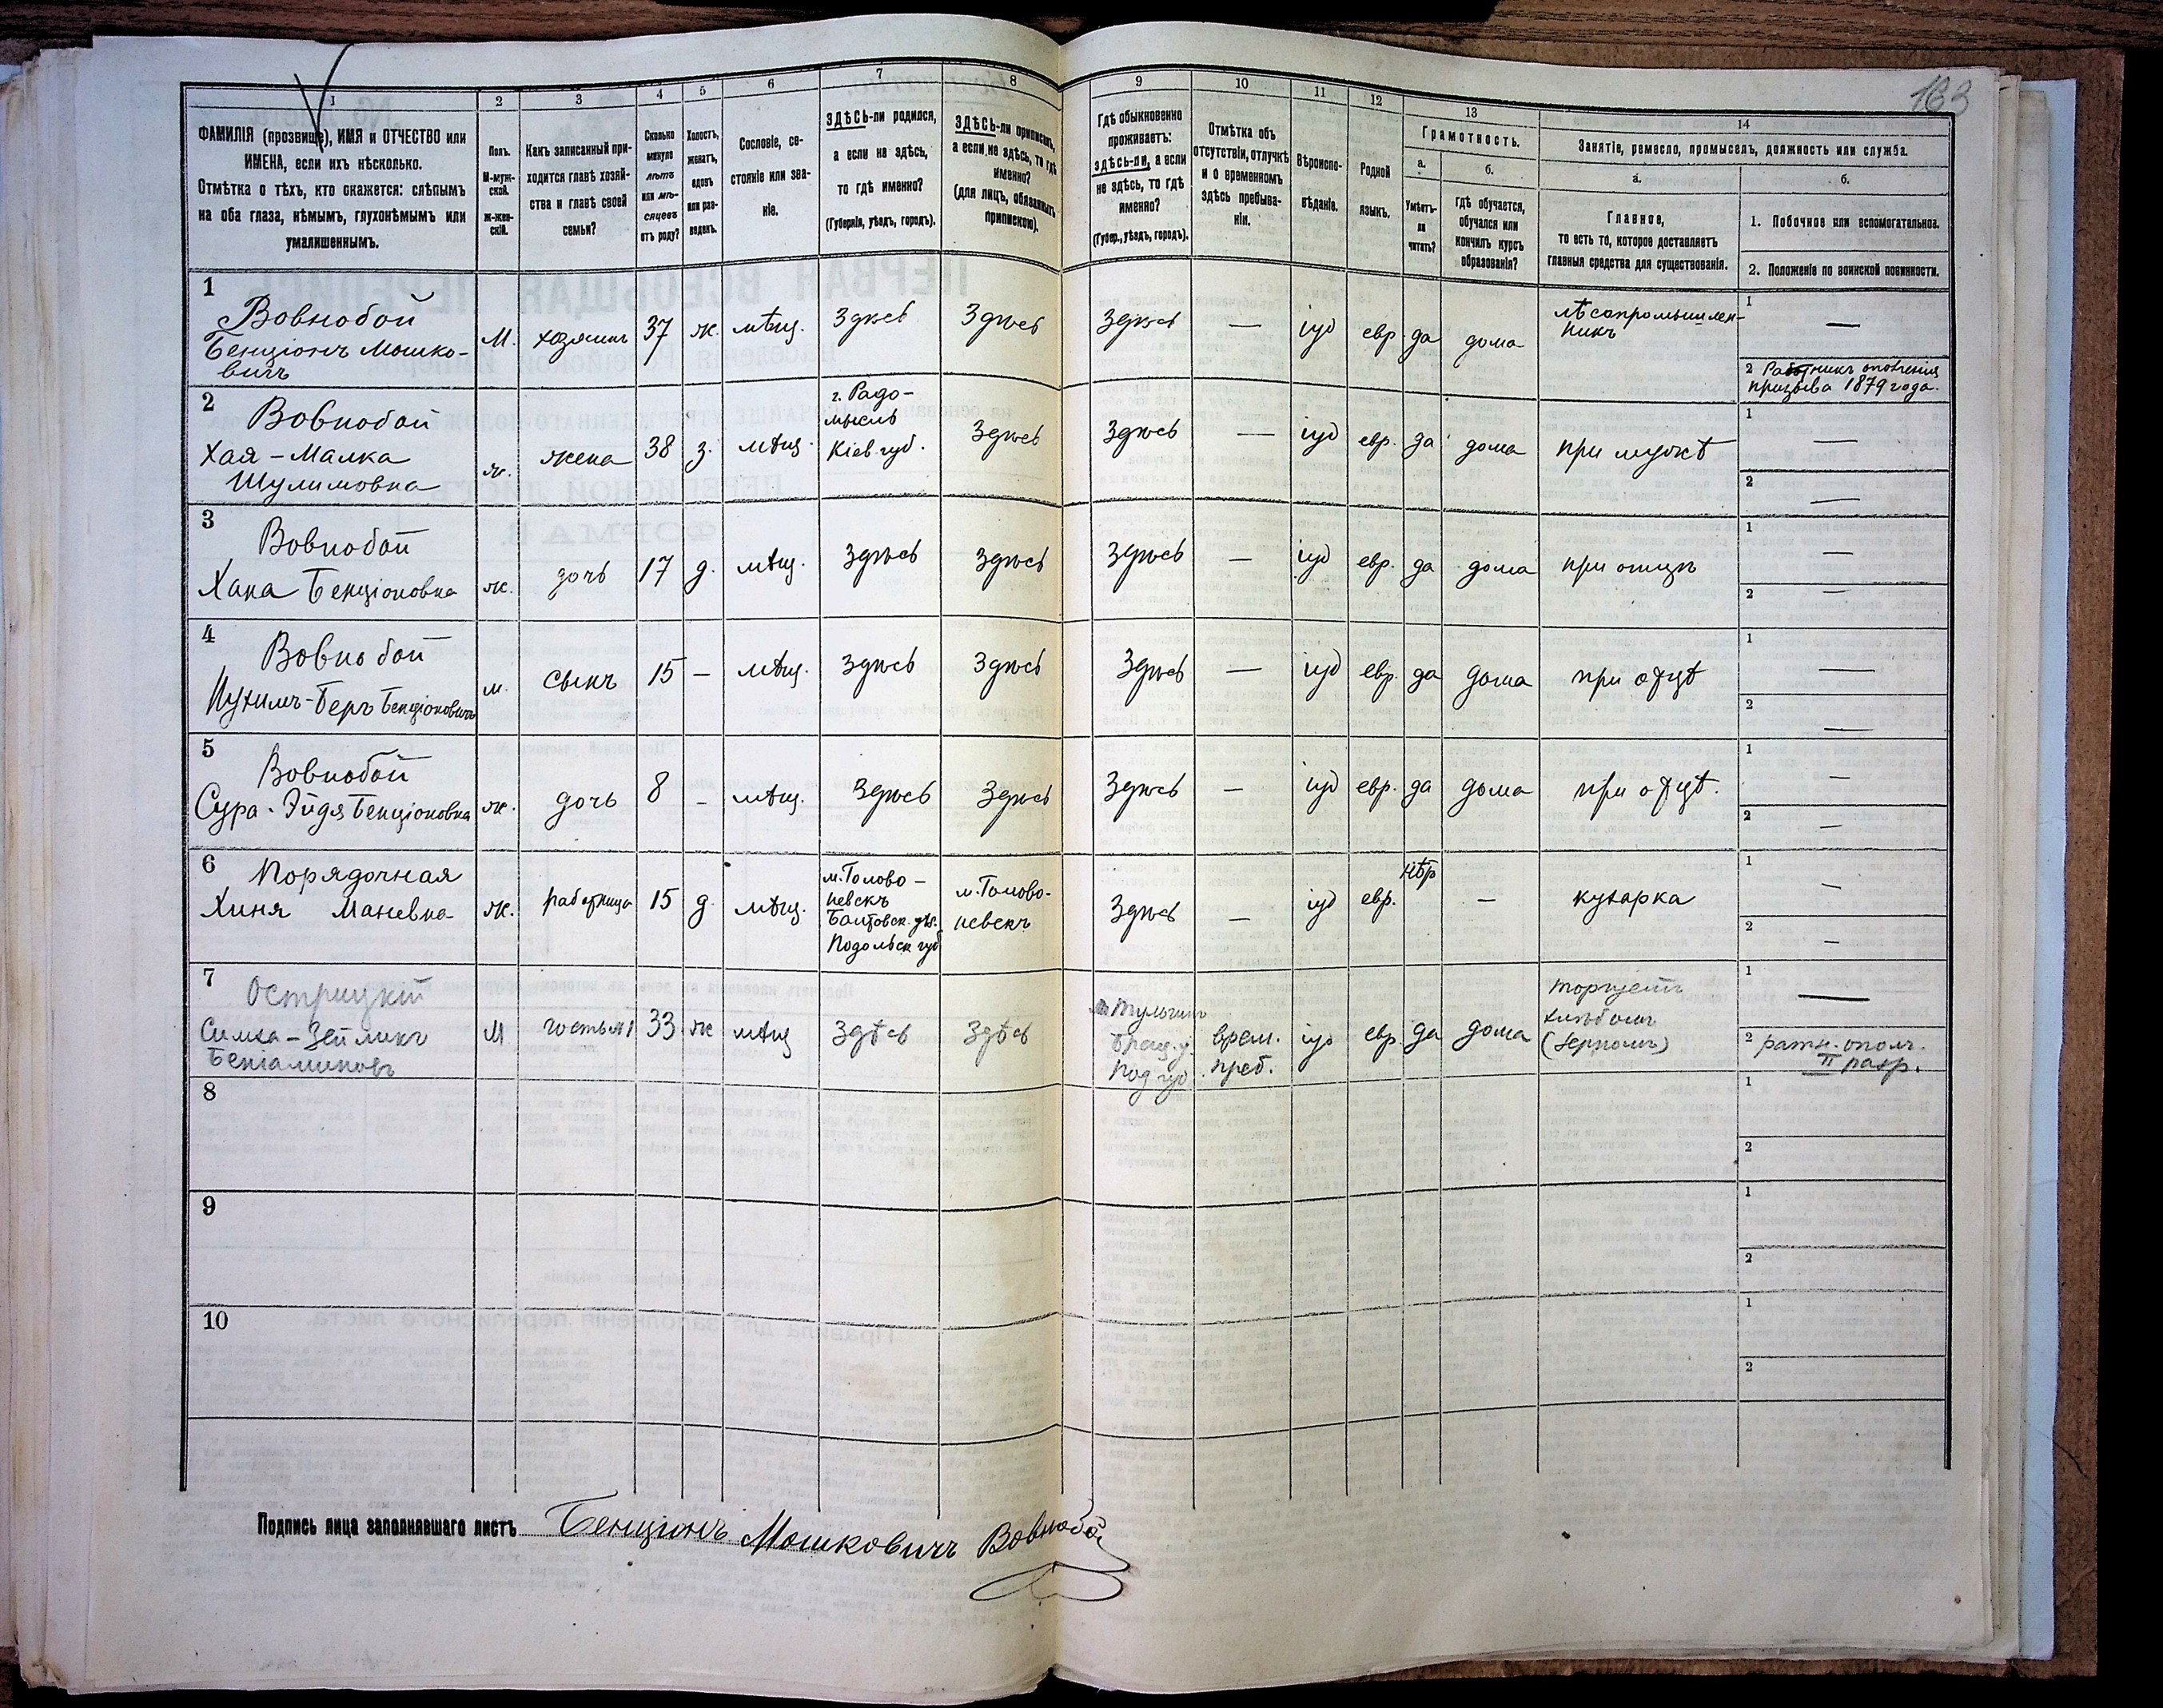 163
1
2
3
4
5
6
7
8
9
10
11
12
13
14
ФАМИЛІЯ (прозвище), ИМЯ и ОТЧЕСТВО или
ИМЕНА, если ихъ нѣсколько.
Отмѣтка о тѣхъ, кто окажется: слѣпымъ
на оба глаза, нѣмымъ, глухонѣмымъ или
умалишеннымъ.
Полъ.
М-муж-
ской.
ж-жен-
скій.
Какъ записанный при-
ходится главѣ хозяй-
ства и главѣ своей
семьи?
Сколько
минуло
лѣтъ
или мѣ-
сяцевъ
отъ роду?
Холостъ,
женатъ,
вдовъ
или раз-
веденъ.
Сословіе, со-
стояніе или зва-
ніе.
ЗДѢСЬ-ли родился,
а если не здѣсь,
то гдѣ именно?
(Губернія, уѣздъ, городъ).
ЗДѢСЬ-ли приписанъ,
а если не здѣсь, то гдѣ
именно?
(для лицъ, обязанныхъ
припискою).
Гдѣ обыкновенно
проживаетъ:
здѣсь-ли, а если
не здѣсь, то гдѣ
именно?
(Губер., уѣздъ, городъ).
Отмѣтка объ
отсутствіи, отлучкѣ
и о временномъ
здѣсь пребыва-
ніи.
Вѣроиспо-
вѣданіе.
Родной
языкъ.
Грамотность.
а.
Умѣетъ-
ли
читать?
б.
Гдѣ обучается,
обучался или
кончилъ курсъ
образованія?
Занятіе, ремесло, промыселъ, должность или служба.
а.
Главное,
то есть то, которое доставляетъ
главныя средства для существованія.
б.
1. Побочное или вспомогательное.
2. Положеніе по воинской повинности.
1
Вовнобой
Бенціонъ Мошко-
вичъ
М.
хозяинъ
37
ж.
мѣщ.
Здѣсь
Здѣсь
Здѣсь
—
іуд
евр.
да
дома
лѣсопромышлен-
никъ
1
—
2
призыва 1879 года.
2
Вовнобой
Хая-Малка
Шулимовна
ж.
жена
38
з.
мѣщ.
г. Радо-
мысль
Кіев. губ.
Здѣсь
Здѣсь
—
іуд
евр.
да
дома
при мужѣ
1
—
2
—
3
Вовнобой
Хана Бенціоновна
ж.
дочь
17
д.
мѣщ.
Здѣсь
Здѣсь
Здѣсь
—
іуд
евр.
да
дома
при отцѣ
1
—
2
—
4
Вовнобой
Нухимъ-Беръ Бенціоновичъ
м.
сынъ
15
—
мѣщ.
Здѣсь
Здѣсь
Здѣсь
—
іуд
евр.
да
дома
при отцѣ
1
—
2
—
5
Вовнобой
Сура-Эйдя Бенціоновна
ж.
дочь
8
-
мѣщ.
Здѣсь
Здѣсь
Здѣсь
—
іуд
евр.
да
дома
при отцѣ.
1
—
2
—
6
Порядочная
Хиня Маневна
ж.
работница
15
д.
мѣщ.
м. Голово-
невскъ
Балтовск. уѣз.
Подольск губ
м. Голово-
невскъ
Здѣсь
—
іуд
евр.
нѣтъ
—
кухарка
1
—
2
—
7
Острицкій
Симха-Зейликъ
Беніаминовъ
М
гость
33
ж
мѣщ
Здѣсь
Здѣсь
Тульчинъ
Брац. у.
Под. губ.
врем.
преб.
іуд
евр.
да
дома
торгуетъ
хлѣбомъ
(зерномъ)
1
—
2 ратн. ополч.
II разр.
8
1
2
9
1
2
10
1
2
Подпись лица заполнявшаго листъ Бенціонъ Мошковичъ Вовнобой